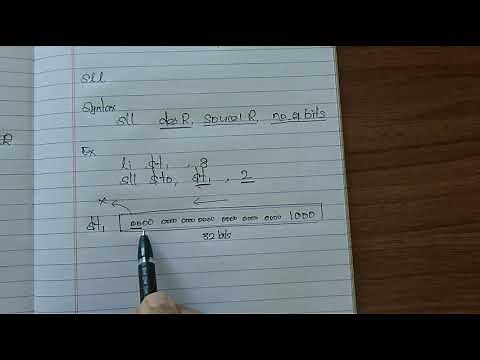 sll
Syntax
sll desR, source1R, no_of bits
Ex
li $t1, 8
sll $t0, $t1, 2
x
$t1 0000 0000 0000 0000 0000 0000 0000 1000
32 bits